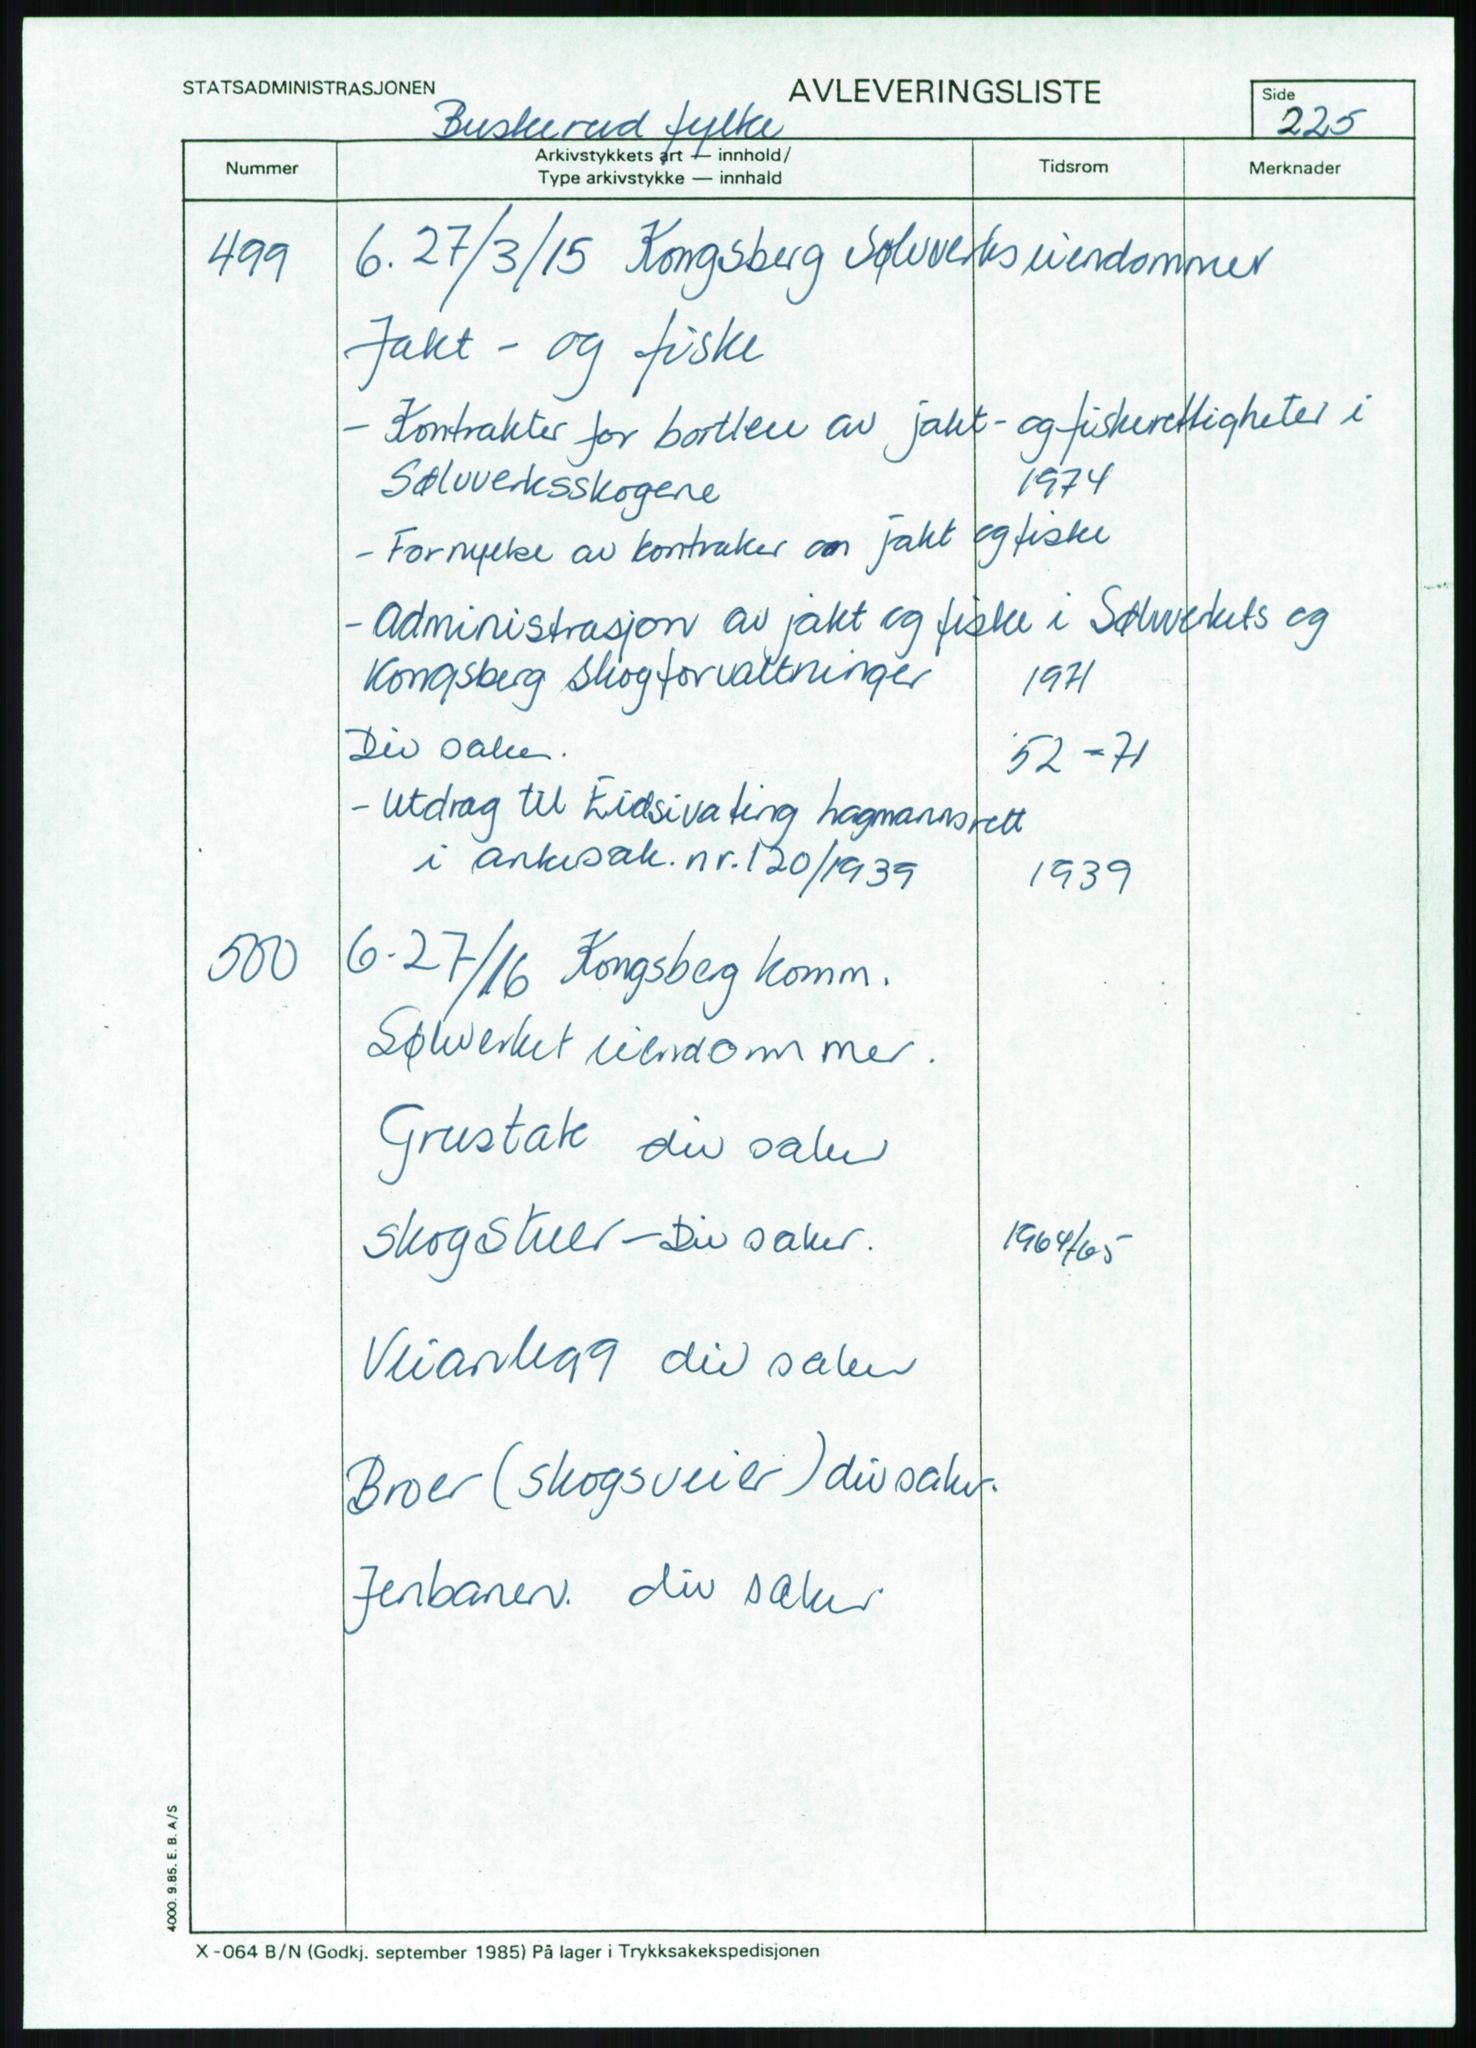 STATSADMINISTRASJONEN
AVLEVERINGSLISTE
Side
225
Buskerud fylke
Nummer
Arkivstykkets art — innhold/
Type arkivstykke — innhald
Tidsrom
Merknader
499 6. 27/3/15 Kongsberg Sølvverks eiendommer
Jakt - og fiske
- Kontrakter for bortleie av jakt- og fiskerettigheter i
Sølvverksskogene 1974
- Fornyelse av kontraker om jakt og fiske
- Administrasjon av jakt og fiske i Sølvverkets og
Kongsberg skogforvaltninger 1971
Div saker. 52-71
- Utdrag til Eidsivating lagmannsrett
i ankesak. nr. 120/1939 1939
500 6-27/16 Kongsberg komm.
Sølvverket eiendommer.
Grustak div saker
skogstuer - Div saker. 1964/65
Veianlegg div saker
Broer (skogsveier) div saker.
Jenbanen. div saker
4000. 9.85. E. B. A/S
X-064 B/N (Godkj. september 1985) På lager i Trykksakekspedisjonen